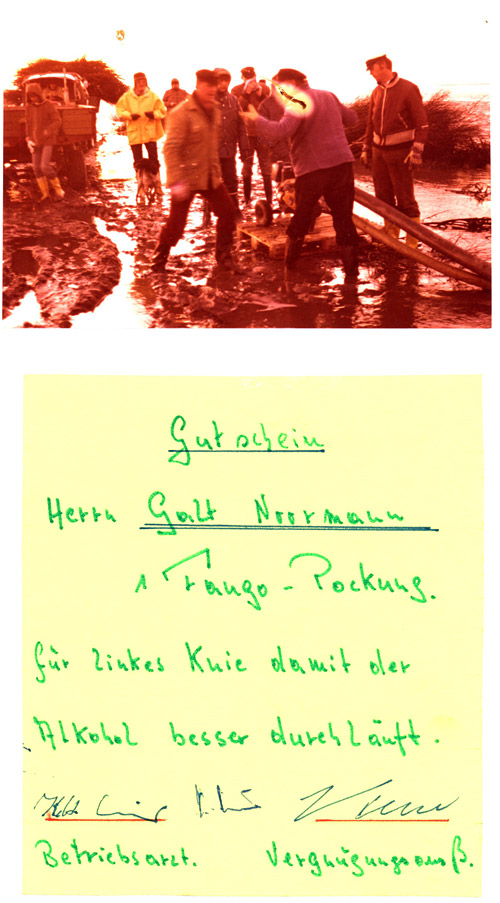 Gutschein
Herrn Galt Noormann
1 Fango-Packung.
für linkes Knie damit der
Alkohol besser durchläuft.
Betriebsarzt. Vergnügungsausß.